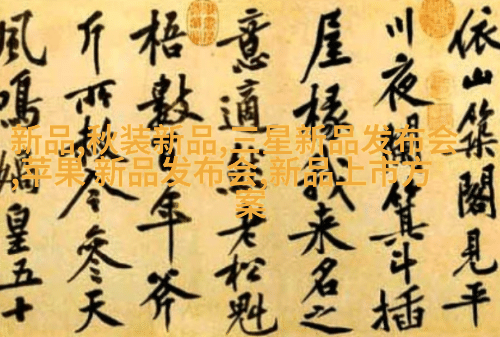 依山築閣見平
川夜闌箕斗插
屋椽我来名之
意適然老松魁
梧數百年斧
斤所赦今參天
風鳴媧皇五十
新品,秋装新品,三星新品发布会
,苹果 新品发布会,新品上市方
案